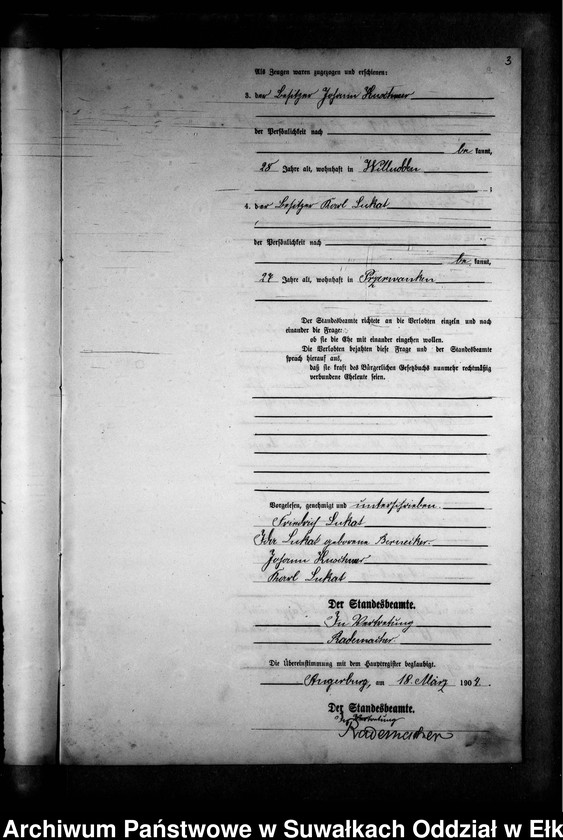 3
Als Zeugen waren zugezogen und erschienen:
3. der Besitzer Johann
der Persönlichkeit nach
be kannt,
28 Jahre alt, wohnhaft in Willudden
;
4. der Besitzer Karl Lukat
der Persönlichkeit nach
be kannt,
27 Jahre alt, wohnhaft in Przerwanken
Der Standesbeamte richtete an die Verlobten einzeln und nach
einander die Frage:
ob sie die Ehe mit einander eingehen wollen.
Die Verlobten bejahten diese Frage und der Standesbeamte
sprach hierauf aus,
daß sie kraft des Bürgerlichen Gesetzbuchs nunmehr rechtmäßig
verbundene Eheleute seien.
Vorgelesen, genehmigt und unterschrieben.
Friedrich Lukat
Ida Lukat geborene Berneiker.
Johann
Karl Lukat
Der Standesbeamte.
In Vertretung
Rademacher
Die Übereinstimmung mit dem Hauptregister beglaubigt.
Angerburg, am 18. März 1904.
Der Standesbeamte.
In Vertretung
Rademacher
Archiwum Państwowe w Suwałkach Oddział w Ełk